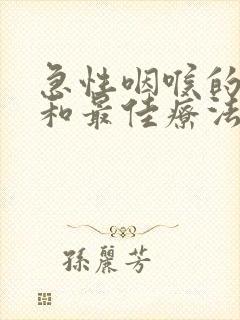 急性咽喉的
和最佳療法
孫麗芳